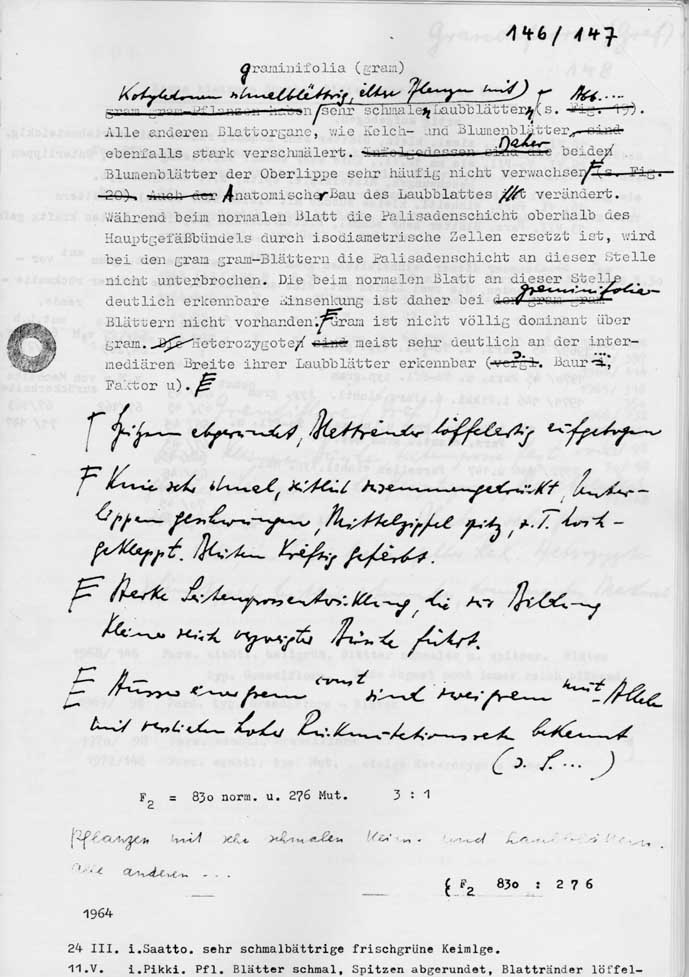 146/147
graminifolia (gram)
Kotyledonen schmalblättrig, ältere Pflanzen mit
gram gram-Pflanzen haben sehr schmale Laubblätter (s. Fig. 19). Abb....
Alle anderen Blattorgane, wie Kelch- und Blumenblätter, sind
ebenfalls stark verschmälert. Infolgedessen sind die Daher beiden
Blumenblätter der Oberlippe sehr häufig nicht verwachsen (s. Fig.
20). Auch der Anatomischer Bau des Laubblattes ist verändert.
Während beim normalen Blatt die Palisadenschicht oberhalb des
Hauptgefäßbündels durch isodiametrische Zellen ersetzt ist, wird
bei den gram gram-Blättern die Palisadenschicht an dieser Stelle
nicht unterbrochen. Die beim normalen Blatt an dieser Stelle
deutlich erkennbare Einsenkung ist daher bei den gram gram graminifolia-
Blättern nicht vorhanden. Gram ist nicht völlig dominant über
gram. Die Heterozygoten sind meist sehr deutlich an der inter-
mediären Breite ihrer Laubblätter erkennbar (vergl. Baur i,
Faktor u).
Spitzen abgerundet, Blattränder löffelartig aufgebogen
Knie sehr schmal, seitlich zusammengedrückt, Unter-
lippen geschwungen, Mittelzipfel spitz, z.T. hoch-
geklappt. Blüten kräftig gefärbt.
Starke Seitensprossentwicklung, die zur Bildung
kleiner reich verzweigter Büsche führt.
Ausser einer gram const sind zwei gram mut-Allele
mit verschieden hoher Rückmutationsrate bekannt
(s. S. ...)
F2 = 830 norm. u. 276 Mut. 3 : 1
Pflanzen mit sehr schmalen Keim- und Laubblättern.
Alle anderen ...
{ F2 830 : 276
1964
24 III. i.Saatto. sehr schmalbättrige frischgrüne Keimlge.
11.V. i.Pikki. Pfl. Blätter schmal, Spitzen abgerundet, Blattränder löffel-